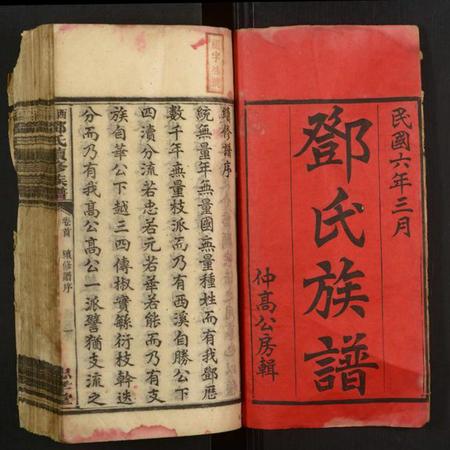 民國六年三月
鄧氏族譜
仲高公房輯
續修譜序
統無量年無量國無量種姓而有我鄧歷
數千年無量枝派而乃有西溪自勝公下
四瀆分流若忠若元若華若能而乃有支
族自華公下越三四傳椒實繇衍枝幹迭
分而乃有我高公高公一派譬猶支流之
西 鄧氏續修族譜 卷首 續修譜序 一